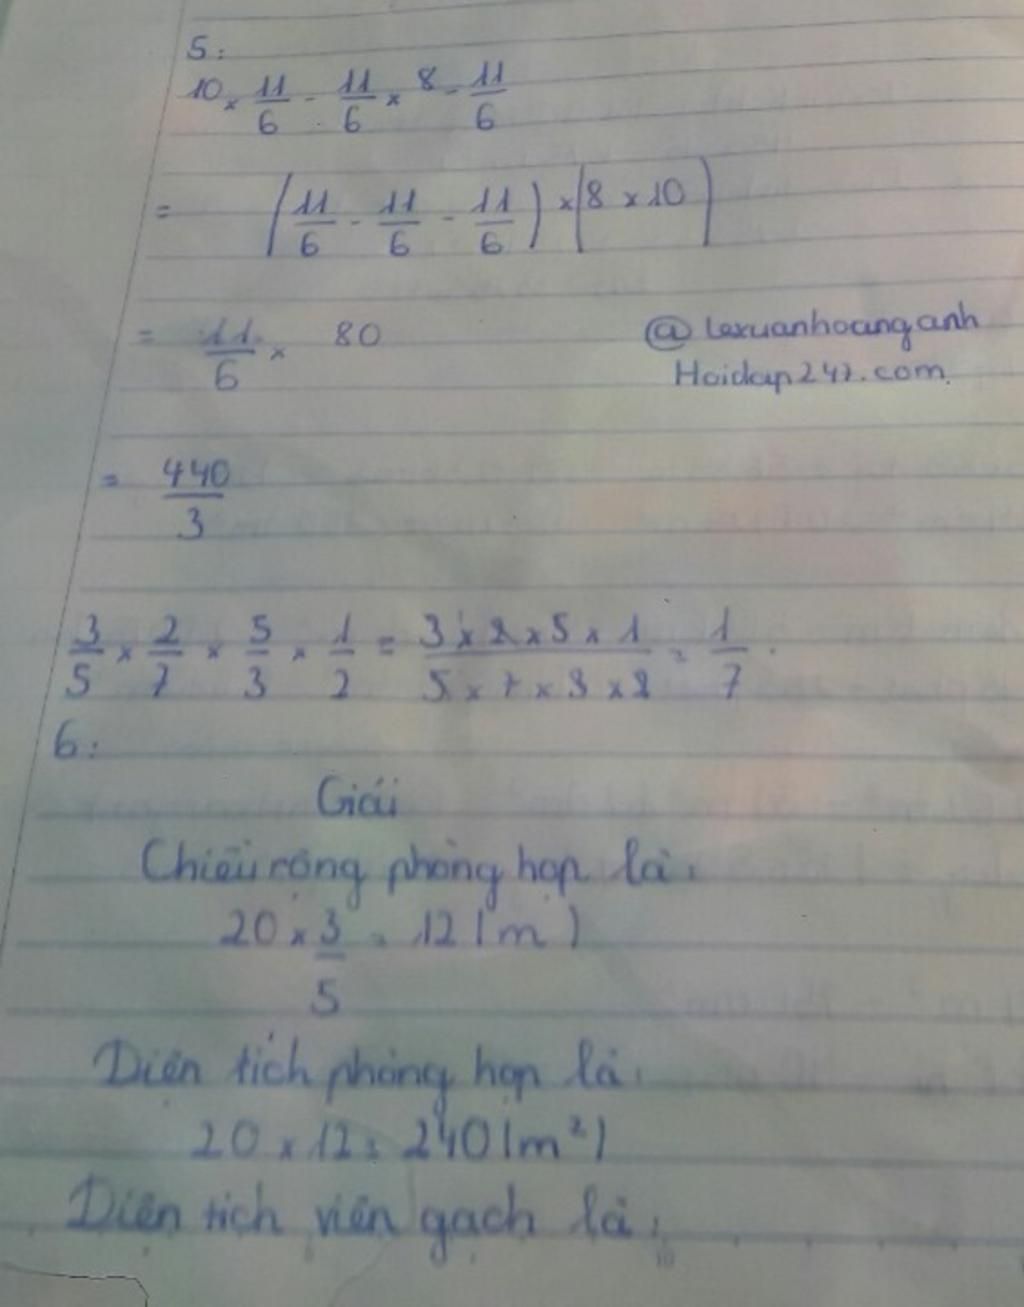 5:
10 × 11/6 - 11/6 × 8 - 11/6
= (11/6 - 11/6 - 11/6) × (8 × 10)
= 11/6 × 80
@lexuanhoanganh
Hoidap247.com.
= 440/3
3/5 × 2/7 × 5/3 × 1/2 = 3 × 2 × 5 × 1 / 5 × 7 × 3 × 2 = 1/7.
6:
Giải
Chiều rộng phòng họp là:
20 × 3/5 = 12 (m)
Diện tích phòng họp là:
20 × 12 = 240 (m²)
Diện tích viên gạch là: